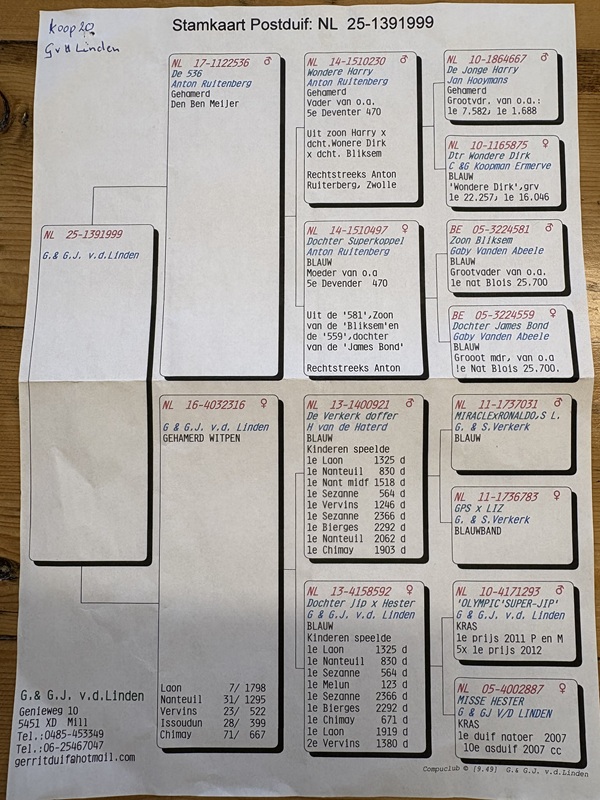 Koop 20
G v d Linden
Stamkaart Postduif: NL 25-1391999
NL 25-1391999
G.& G.J. v.d.Linden
NL 17-1122536 ♂
De 536
Anton Ruitenberg
Gehamerd
Den Ben Meijer
NL 16-4032316 ♀
G.& G.J. v.d. Linden
GEHAMERD WITPEN
Laon 7/ 1798
Nanteuil 31/ 1295
Vervins 23/ 522
Issoudun 28/ 399
Chimay 71/ 667
NL 14-1510230 ♂
Wondere Harry
Anton Ruitenberg
Gehamerd
Vader van o.a.
5e Deventer 470
Uit zoon Harry x
dcht.Wonere Dirk
x dcht. Bliksem
Rechtstreeks Anton
Ruiterberg, Zwolle
NL 14-1510497 ♀
Dochter Superkoppel
Anton Ruitenberg
BLAUW
Moeder van o.a
5e Devender 470
Uit de '581',Zoon
van de 'Bliksem'en
de '559',dochter
van de 'James Bond'
Rechtstreeks Anton
NL 13-1400921 ♂
De Verkerk doffer
H van de Haterd
BLAUW
Kinderen speelde
1e Laon 1325 d
1e Nanteuil 830 d
1e Nant midf 1518 d
1e Sezanne 564 d
1e Vervins 1246 d
1e Sezanne 2366 d
1e Bierges 2292 d
1e Nanteuil 2062 d
1e Chimay 1903 d
NL 13-4158592 ♀
Dochter jip x Hester
G & G.J. v.d. Linden
BLAUW
Kinderen speelde
1e Laon 1325 d
1e Nanteuil 830 d
1e Sezanne 564 d
1e Melun 123 d
1e Sezanne 2366 d
1e Bierges 2292 d
1e Chimay 671 d
1e Laon 1919 d
2e Vervins 1380 d
NL 10-1864667 ♂
De Jonge Harry
Jan Hooymans
Gehamerd
Grootvdr. van o.a.:
1e 7.582, 1e 1.688
NL 10-1165875 ♀
Dtr Wondere Dirk
C &G Koopman Ermerve
BLAUW
'Wondere Dirk',grv
1e 22.257, 1e 16.046
BE 05-3224581 ♂
Zoon Bliksem
Gaby Vanden Abeele
BLAUW
Grootvader van o.a.
1e nat Blois 25.700
BE 05-3224559 ♀
Dochter James Bond
Gaby Vanden Abeele
BLAUW
Grooot mdr, van o.a
!e Nat Blois 25.700.
NL 11-1737031 ♂
MIRACLExRONALDO,S L.
G. & S.Verkerk
BLAUW
NL 11-1736783 ♀
GPS x LIZ
G. & S.Verkerk
BLAUWBAND
NL 10-4171293 ♂
'OLYMPIC'SUPER-JIP'
G & G.J. v.d. Linden
KRAS
1e prijs 2011 P en M
5x 1e prijs 2012
NL 05-4002887 ♀
MISSE HESTER
G & GJ V/D LINDEN
KRAS
1e duif natoer 2007
10e asduif 2007 cc
G.& G.J. v.d.Linden
Genieweg 10
5451 XD Mill
Tel.:0485-453349
Tel.:06-25467047
gerritduif@hotmail.com
Compuclub © [9.49] G.& G.J. v.d.Linden